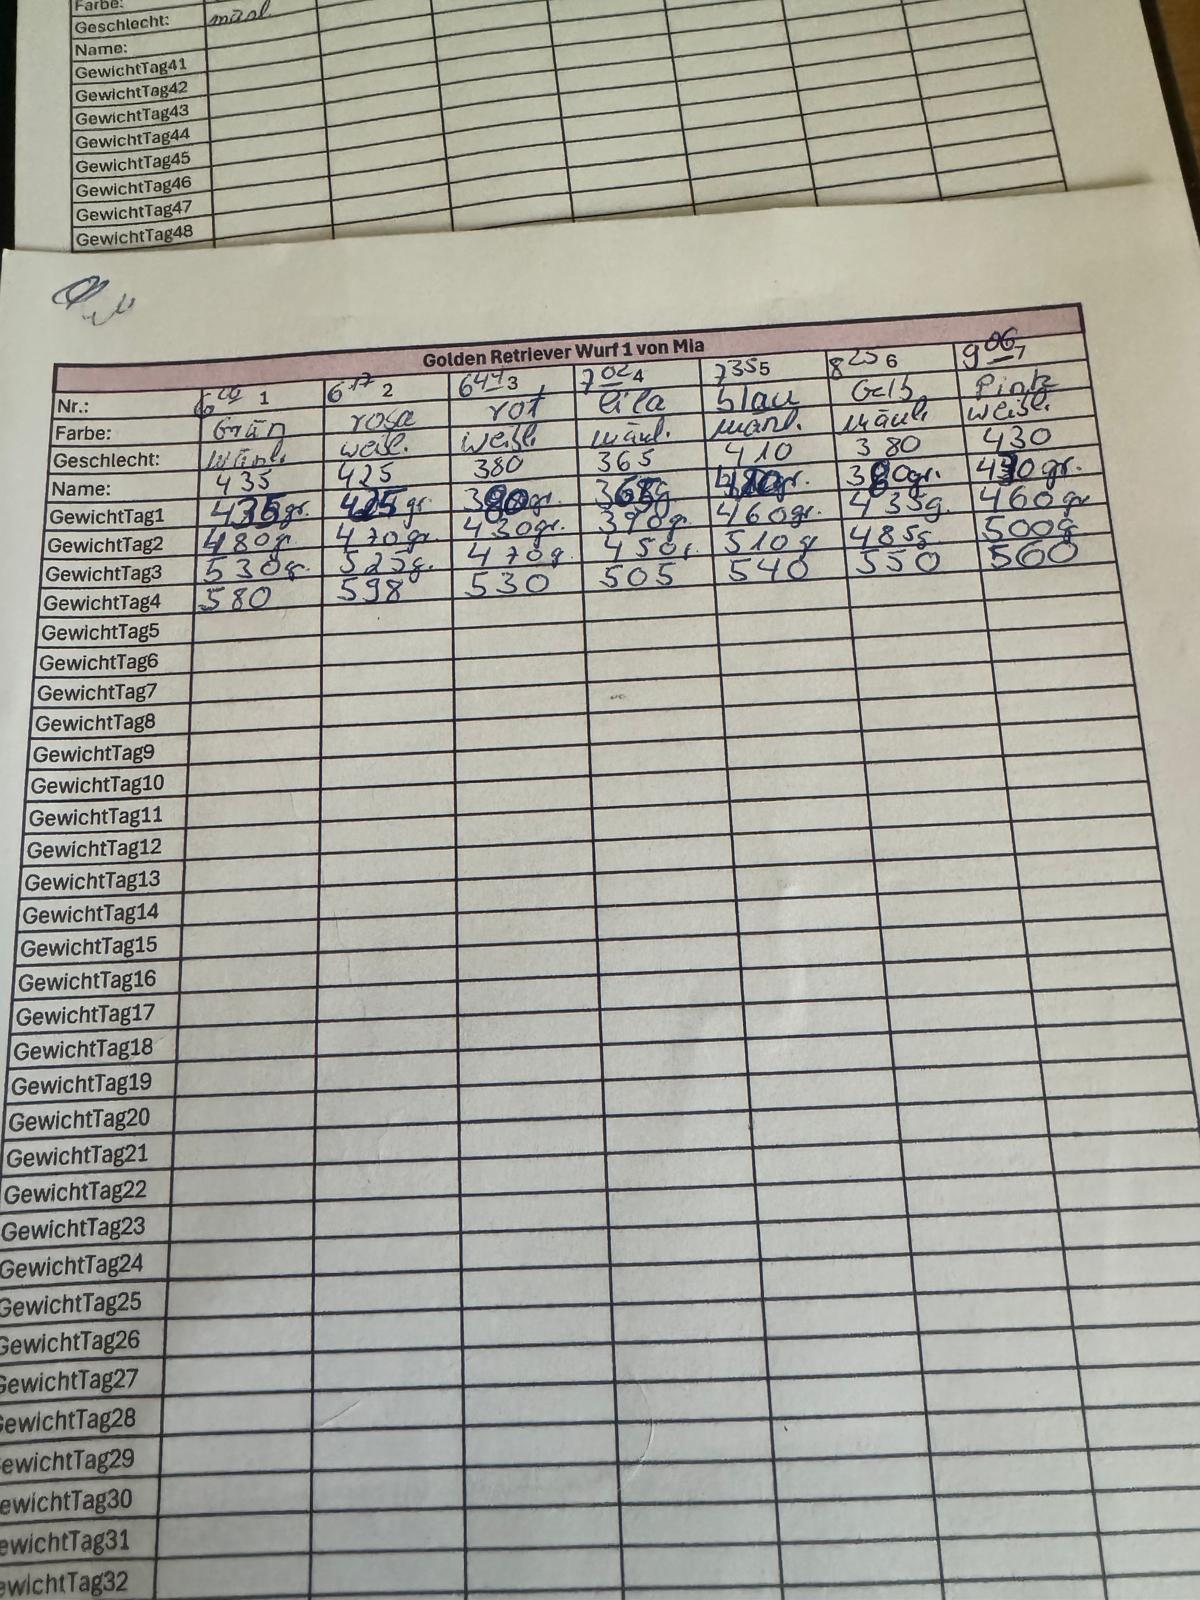 Farbe:
Geschlecht: mänl.
Name:
GewichtTag41
GewichtTag42
GewichtTag43
GewichtTag44
GewichtTag45
GewichtTag46
GewichtTag47
GewichtTag48
Golden Retriever Wurf 1 von Mia
Nr.: 1 6 17 2 6 44 3 7 02 4 7 35 5 8 25 6 9 06 7
Farbe: Grün rosa rot lila blau Gelb Pink
Geschlecht: mänl. weibl. weibl. mänl. mänl. mänl. weibl.
Name: 435 425 380 365 410 380 430
GewichtTag1 gr. 425 gr. gr. gr. gr. gr.
GewichtTag2 480gr. 470gr. 430gr. 390gr. 460gr. 435g. 460gr
GewichtTag3 530gr. 525g. 470g. 450g. 510g 485g. 500g
GewichtTag4 580 598 530 505 540 550 560
GewichtTag5
GewichtTag6
GewichtTag7
GewichtTag8
GewichtTag9
GewichtTag10
GewichtTag11
GewichtTag12
GewichtTag13
GewichtTag14
GewichtTag15
GewichtTag16
GewichtTag17
GewichtTag18
GewichtTag19
GewichtTag20
GewichtTag21
GewichtTag22
GewichtTag23
GewichtTag24
GewichtTag25
GewichtTag26
GewichtTag27
GewichtTag28
GewichtTag29
GewichtTag30
GewichtTag31
GewichtTag32